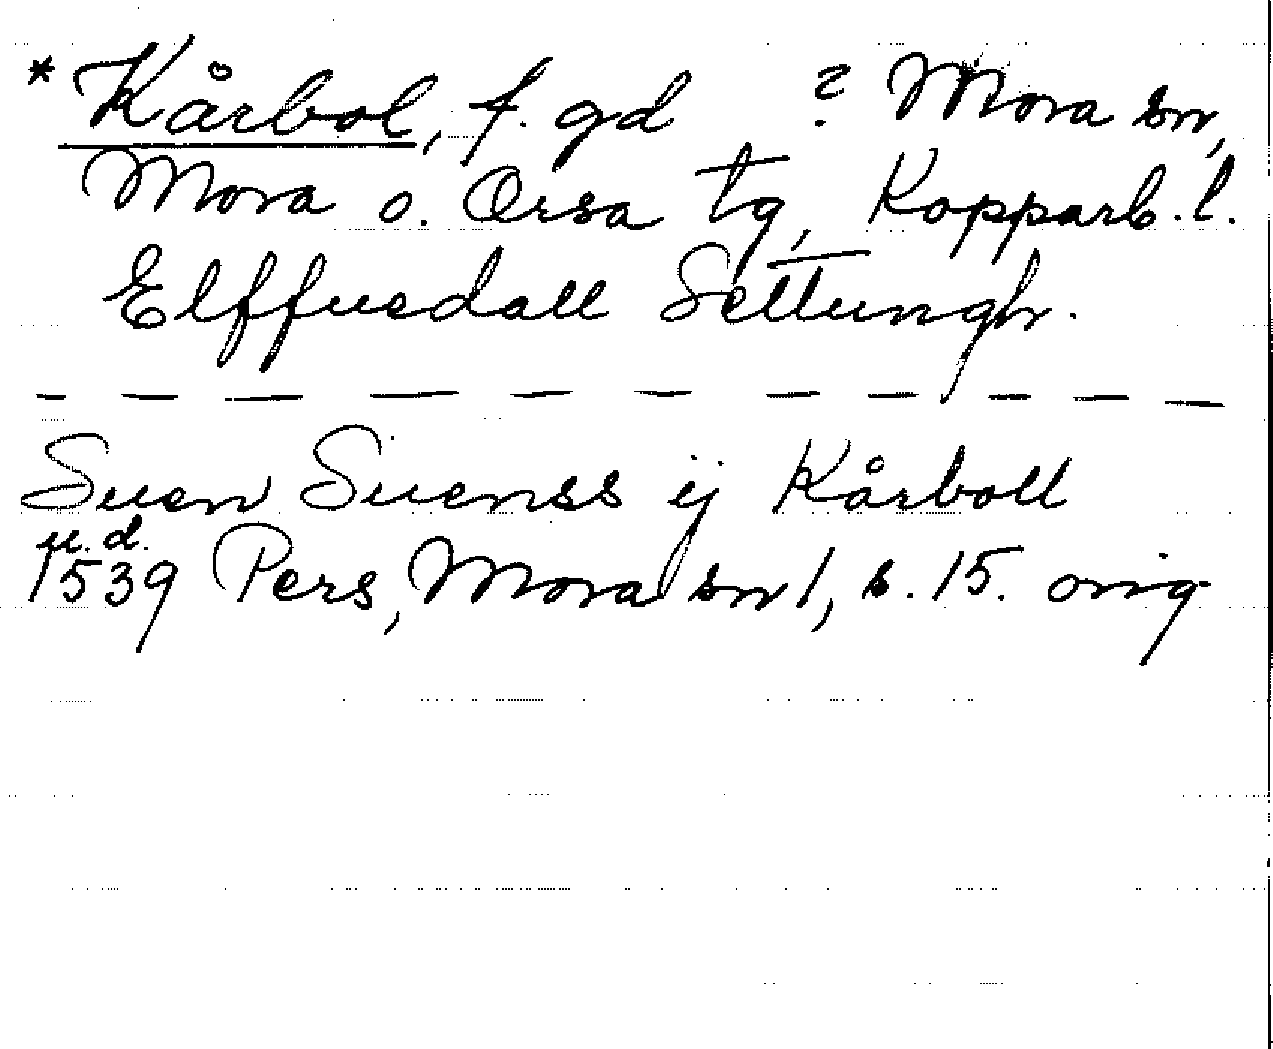 * Kårbol, f. gd ? Mora sn,
Mora o. Orsa tg, Kopparb. l.
Elffuedall Settungh.
Suen Suenss ij Kårboll
u. d.
1539 Pers, Mora sn 1, s. 15. orig